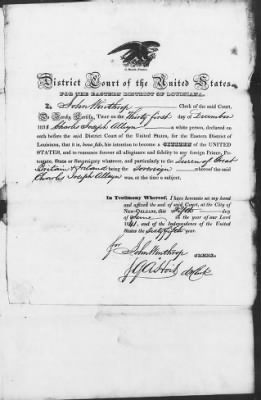 District Court of the United States
FOR THE EASTERN DISTRICT OF LOUISIANA.
I, John Winthrop Clerk of the said Court,
Do hereby Certify, That on the Thirty first day of December
1838 Charles Joseph Alleyn a white person, declared on
oath before the said District Court of the United States, for the Eastern District of
Louisiana, that it is, bona fide, his intention to become a CITIZEN of the UNITED
STATES, and to renounce forever all allegiance and fidelity to any foreign Prince, Po-
tentate, State or Sovereignty whatever, and particularly to the Queen of Great
Britain & Ireland being the Sovereign whereof the said
Charles Joseph Alleyn was, at the time a subject.
In Testimony Whereof, I have hereunto set my hand
and affixed the seal of said Court, at the City of
New-Orleans, this Fifth day
of June in the year of our Lord
1841, and of the Independence of the United
States the sixty fifth year.
John Winthrop CLERK.